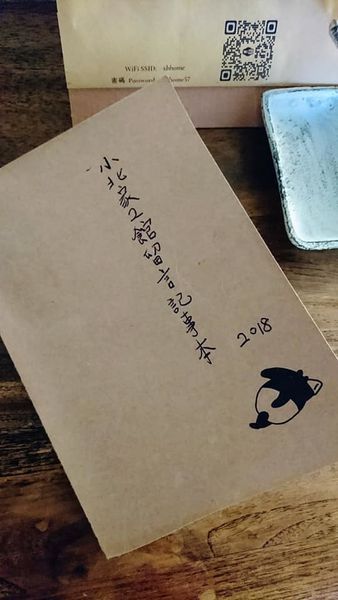 WiFi SSID: hhome
密碼 Password: home57
小北家2館留言記事本
2018